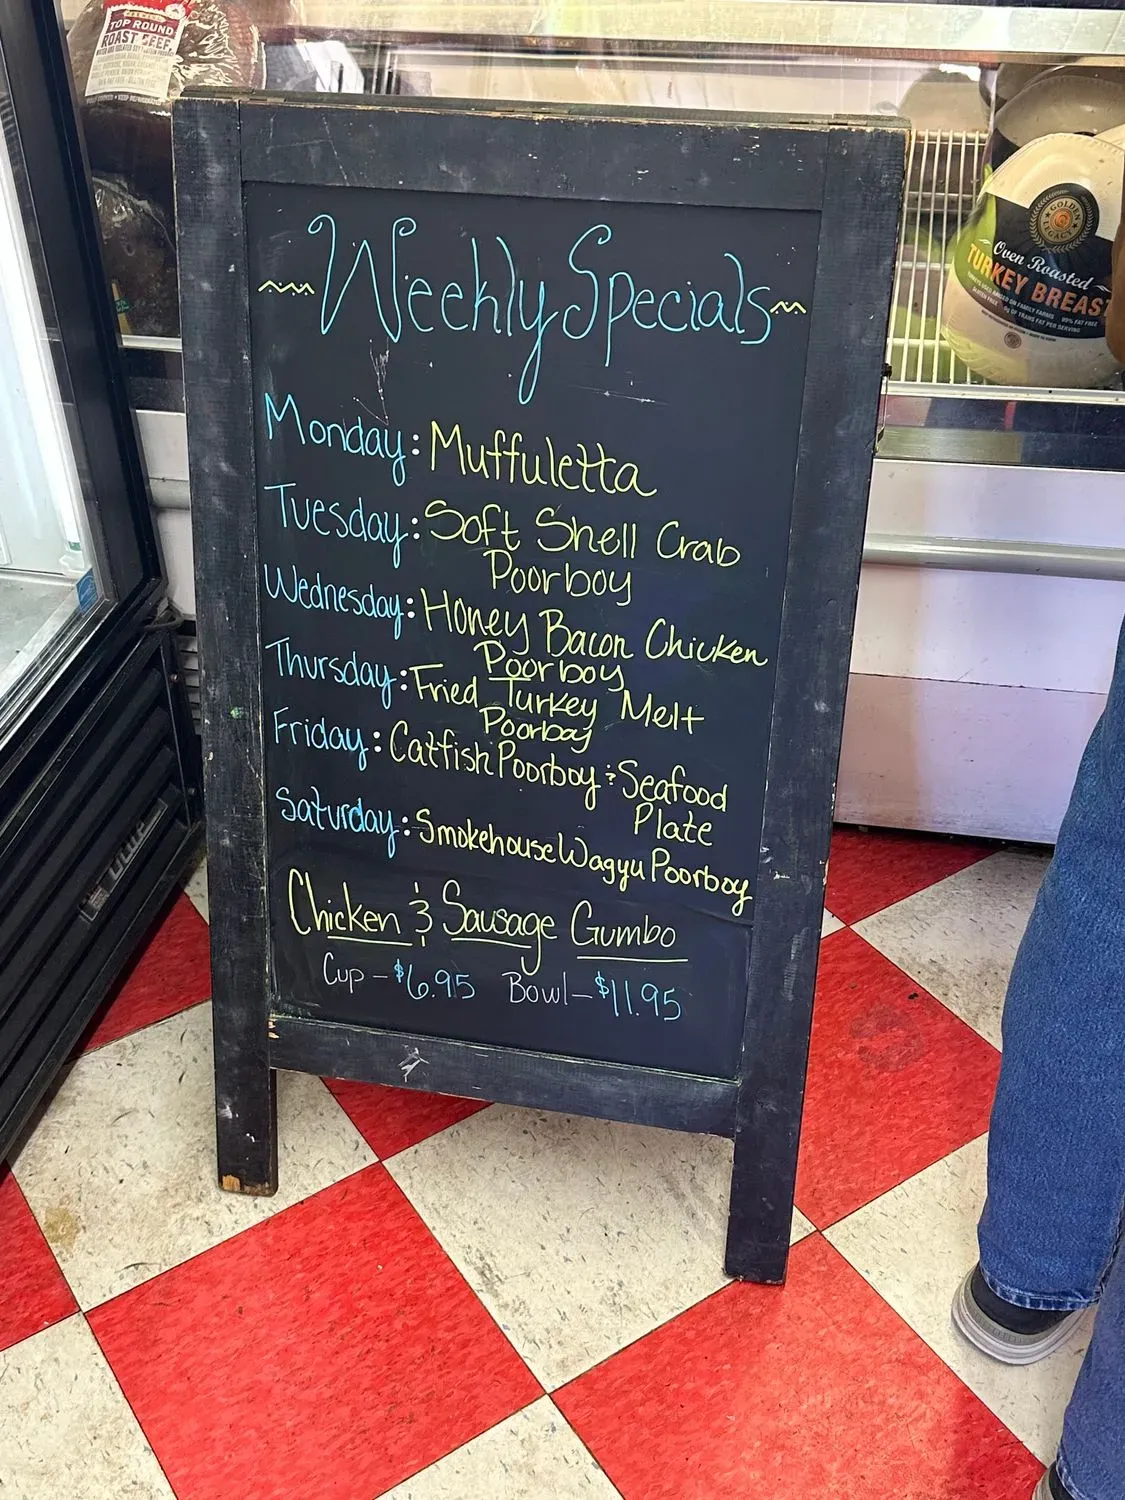 TOP ROUND
ROAST BEEF
GOLDEN
LEGACY
Oven Roasted
TURKEY BREAST
Weekly Specials
Monday: Muffuletta
Tuesday: Soft Shell Crab
Poorboy
Wednesday: Honey Bacon Chicken
Poorboy
Thursday: Fried Turkey Melt
Poorboy
Friday: Catfish Poorboy & Seafood
Plate
Saturday: Smokehouse Wagyu Poorboy
Chicken & Sausage Gumbo
Cup - $6.95 Bowl - $11.95